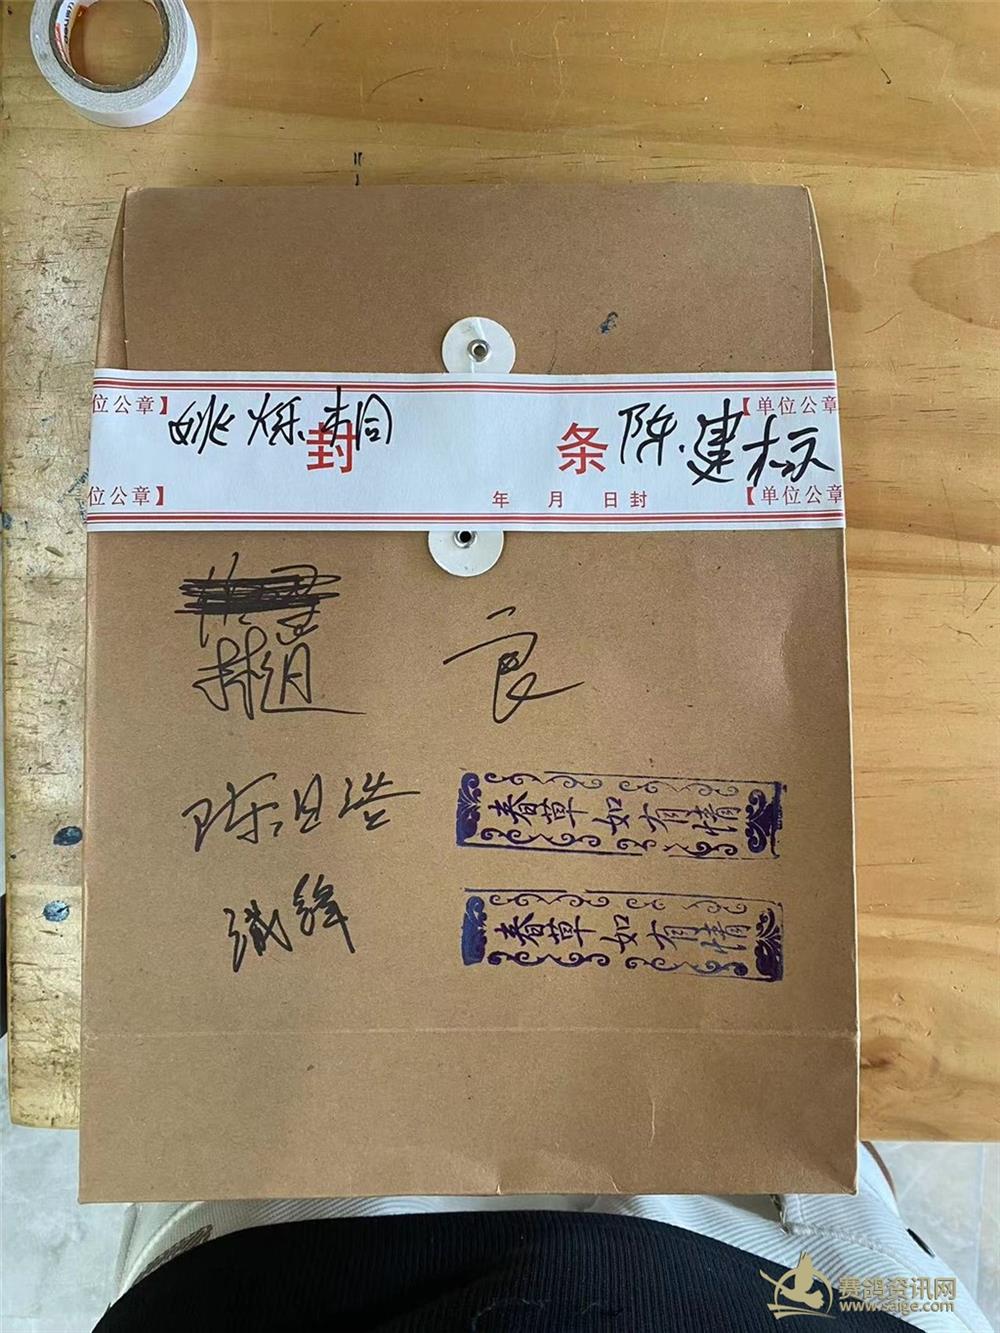 位公章】
【单位公章
姚烁桐
陈建标
封 条
位公章】
年 月 日封
【单位公章
良
陈旦浩
春草如有情
春草如有情
赛鸽资讯网
www.saige.com